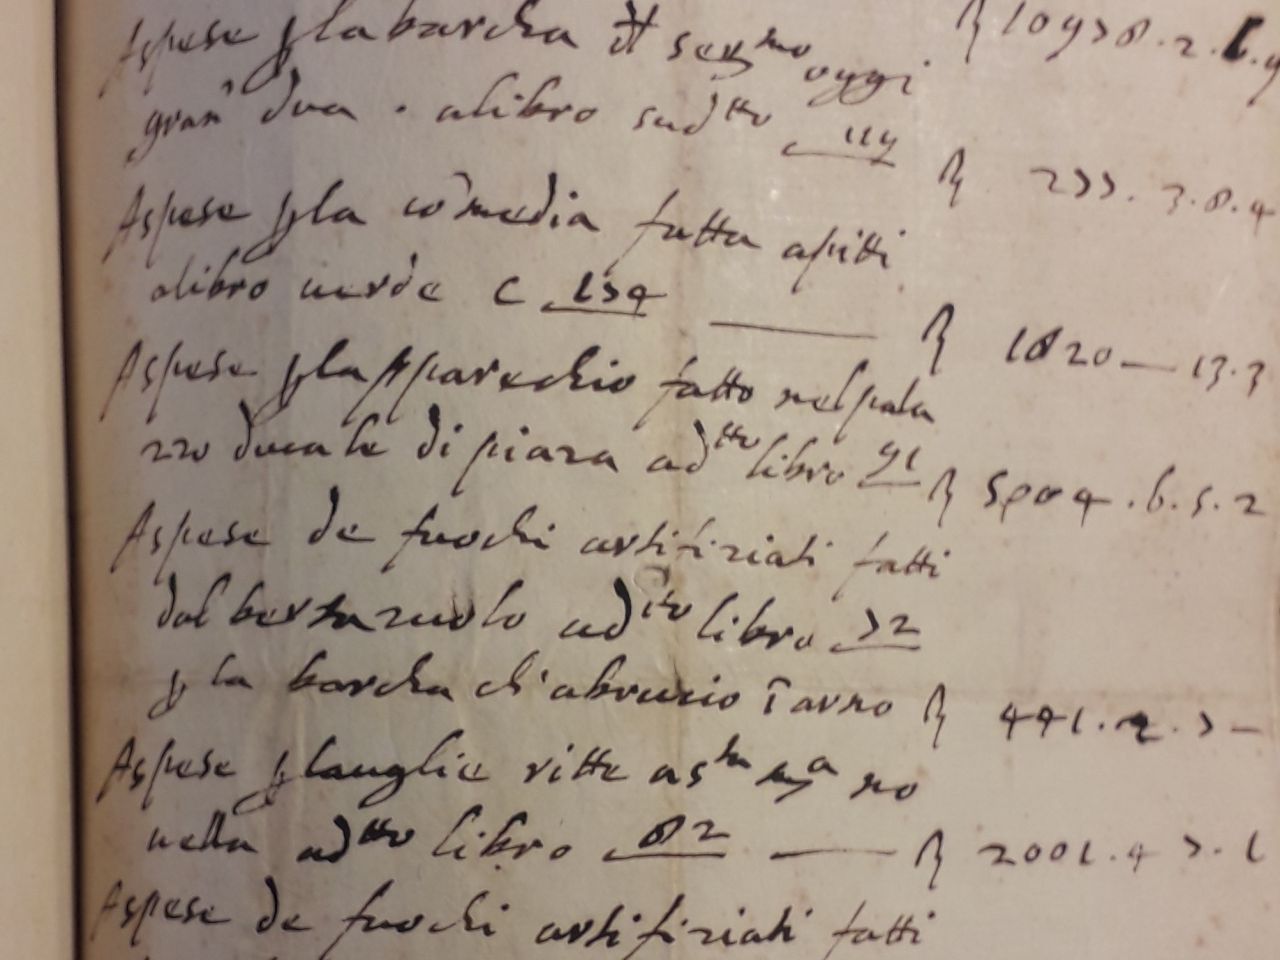 Aspese p la barcha del ser.mo oggi ₰ 10938.2.6.9
gran dua . alibro sud.tto 119 ₰ 233.3.8.4
Aspese p la comedia fatta apitti
alibro uerde c 134 ₰ 1820 — 13.3
Aspese p lapparechio fatto nelpala
zzo ducale di piaza ad.tto libro 91 ₰ 5804.6.5.2
Aspese de fuochi artifiziati fatti
dal ad.tto libro 32
p la barcha ch'abrucio ī arno ₰ 441.2.3 —
Aspese p lauglie ritte as.ta m.a no
uella ad.tto libro 82 ₰ 2001.4.3.1
Aspese de fuochi artifiziati fatti